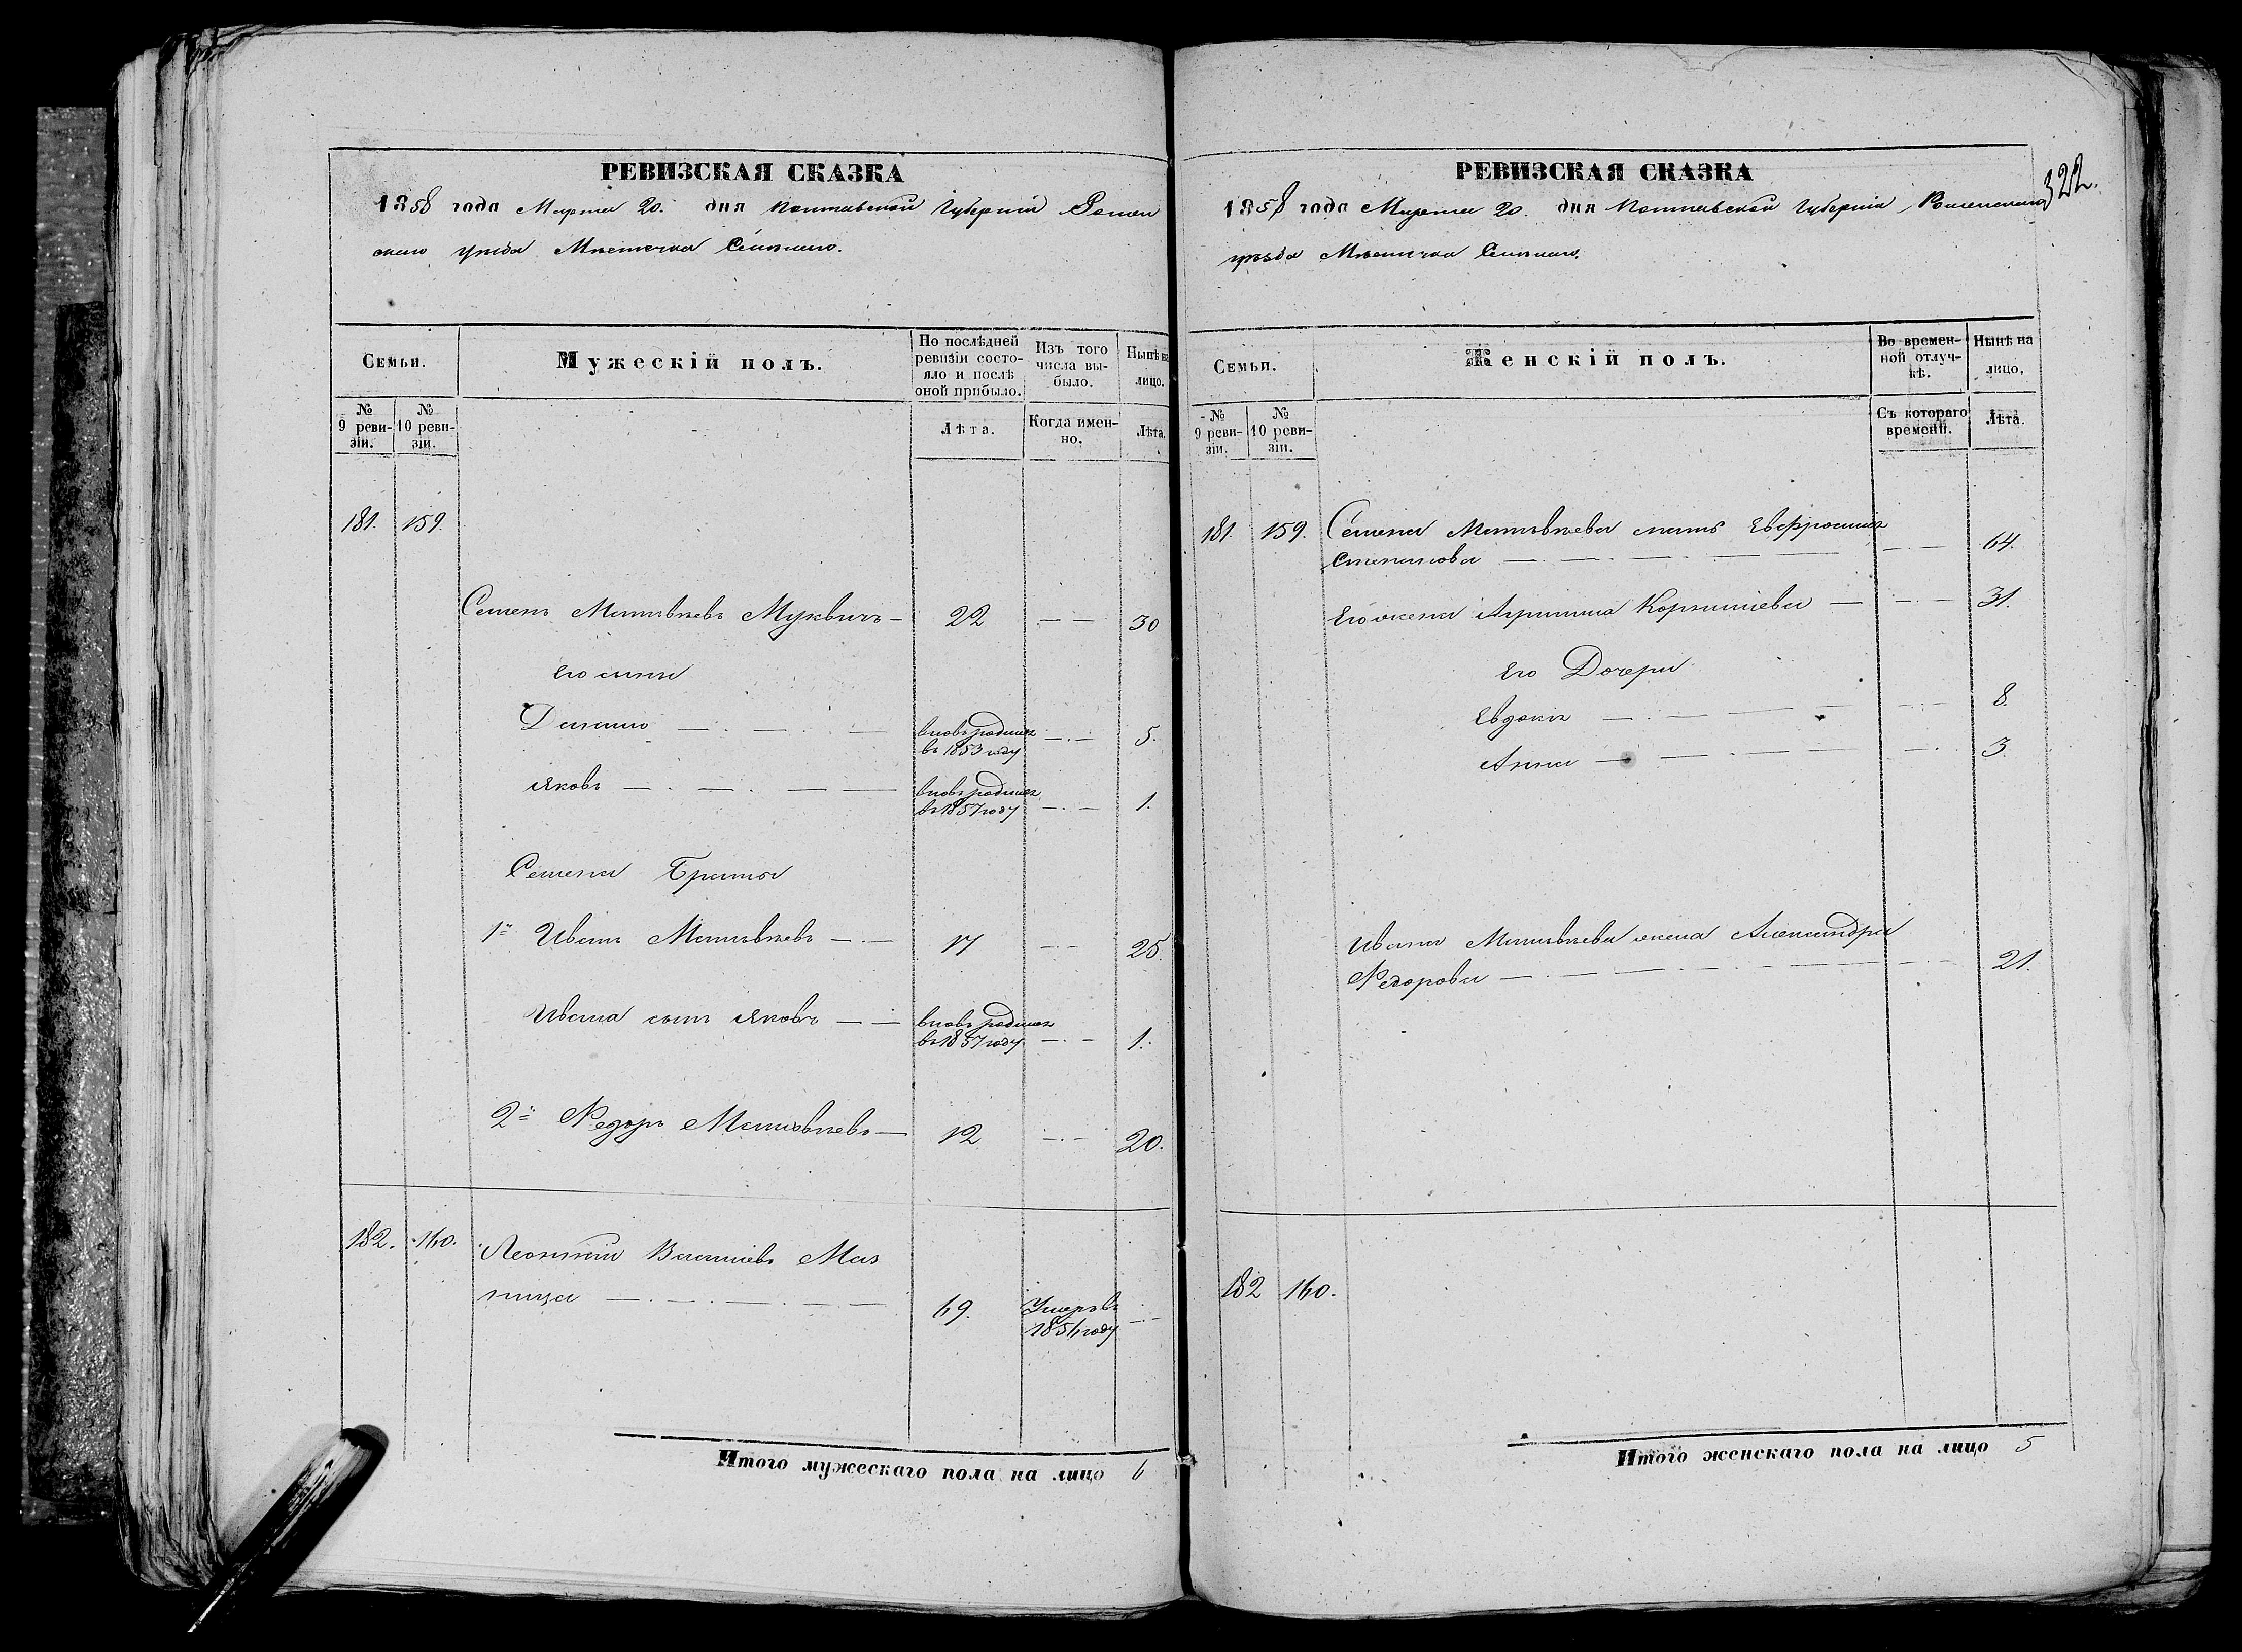 РЕВИЗСКАЯ СКАЗКА
1858 года Марта 20. дня Полтавской Губерніи Ромен
скаго уезда Местечка
Семьи.
Мужескій полъ.
По послѣдней ревизіи состояло и послѣ оной прибыло.
Изъ того числа выбыло.
Нынѣ на лицо.
№ 9 ревизіи.
№ 10 ревизіи.
Лѣта.
Когда именно.
Лѣта.
181. 159.
Семенъ Матвѣевъ Муквичъ — 22 — — 30
Его сыны
Данило — вновь родился — 5.
въ 1853 году
Яковъ — вновь родился — 1.
въ 1857 году
Семена Браты
1й Иванъ Матвѣевъ — 17 — 25.
Ивана сынъ Яковъ — вновь родился — 1.
въ 1857 году
2й Федоръ Матвѣевъ — 12 — 20.
182. 160. Леонтій Маз
ница — 69. Умеръ въ
1856 году
Итого мужескаго пола на лицо 6
РЕВИЗСКАЯ СКАЗКА
322.
1858 года Марта 20. дня Полтавской Губерніи Роменскаго
уезда Местечка
Семьи.
Женскій полъ.
Во временной отлучкѣ.
Нынѣ на лицо.
№ 9 ревизіи.
№ 10 ревизіи.
Съ котораго времени.
Лѣта.
181. 159. Семена Матвѣева мать Евфросинія
Степанова — 64.
Его жена Агрипина Корнилiева — 31.
Его Дочери
Евдокія — 8.
Анна — 3.
Ивана Матвѣева жена Александра
Федорова — 21.
182 160.
Итого женскаго пола на лицо 5